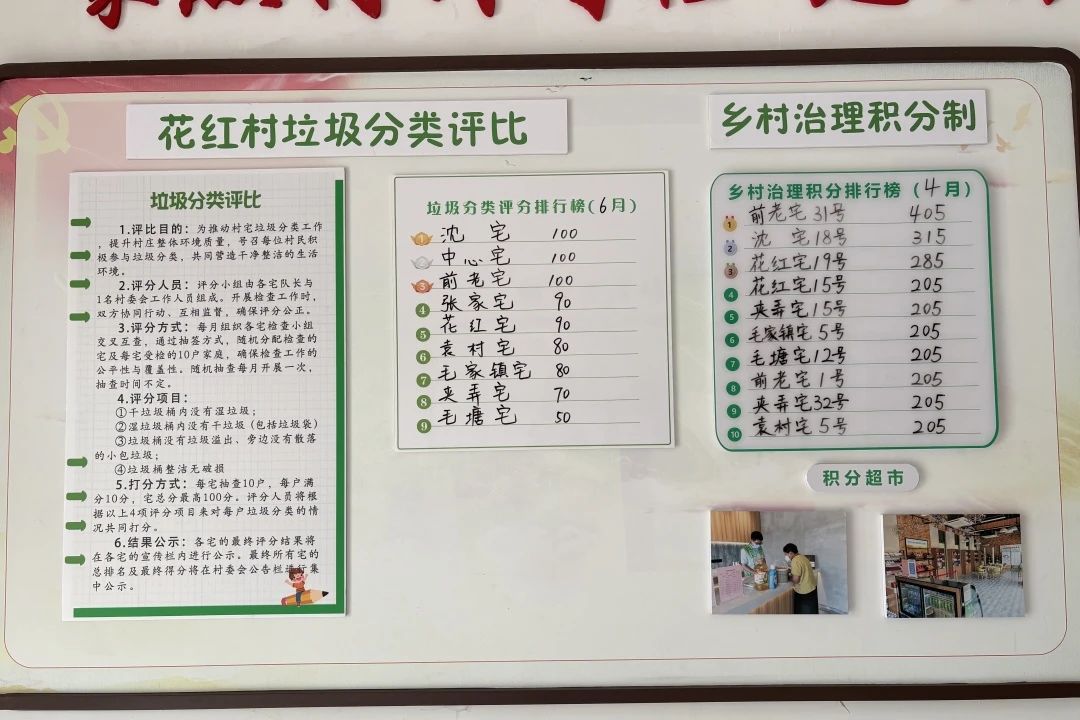 花红村垃圾分类评比
垃圾分类评比
1.评比目的：为推动村宅垃圾分类工作
，提升村庄整体环境质量，号召每位村民积
极参与垃圾分类，共同营造干净整洁的生活
环境。
2.评分人员：评分小组由各宅队长与
1名村委会工作人员组成。开展检查工作时，
双方协同行动、互相监督，确保评分公正。
3.评分方式：每月组织各宅检查小组
交叉互查，通过抽签方式，随机分配检查的
宅及每宅受检的10户家庭，确保检查工作的
公平性与覆盖性。随机抽查每月开展一次，
抽查时间不定。
4.评分项目：
①干垃圾桶内没有湿垃圾；
②湿垃圾桶内没有干垃圾（包括垃圾袋）
③垃圾桶没有垃圾溢出、旁边没有散落
的小包垃圾；
④垃圾桶整洁无破损
5.打分方式：每宅抽查10户，每户满
分10分，宅总分最高100分。评分人员将根
据以上4项评分项目来对每户垃圾分类的情
况共同打分。
6.结果公示：各宅的最终评分结果将
在各宅的宣传栏内进行公示。最终所有宅的
总排名及最终得分将在村委会公告栏进行集
中公示。
垃圾分类评分排行榜(6月)
1 沈宅 100
2 中心宅 100
3 前老宅 100
4 张家宅 90
5 花红宅 90
6 袁村宅 80
7 毛家镇宅 80
8 夹弄宅 70
9 毛塘宅 50
乡村治理积分制
乡村治理积分排行榜（4月）
1 前老宅31号 405
2 沈宅18号 315
3 花红宅19号 285
4 花红宅15号 205
5 夹弄宅15号 205
6 毛家镇宅5号 205
7 毛塘宅12号 205
8 前老宅1号 205
9 夹弄宅32号 205
10 袁村宅5号 205
积分超市